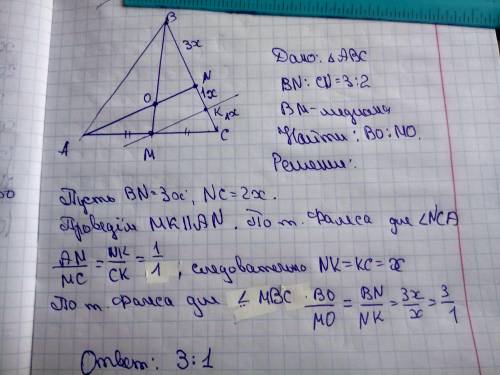 B
3x
N
1x
O
K
1x
A
M
C
Дано: △ABC
BN:CN=3:2
BM-медиана
Найти: BO:MO.
Решение:
Пусть BN=3x, NC=2x.
Проведём MK||AN. По т. Фалеса для ∠NCA
AN/MC = NK/CK = 1/1, следовательно NK=KC=x
По т. Фалеса для ∠ MBC. BO/MO = BN/NK = 3x/x = 3/1
Ответ: 3:1